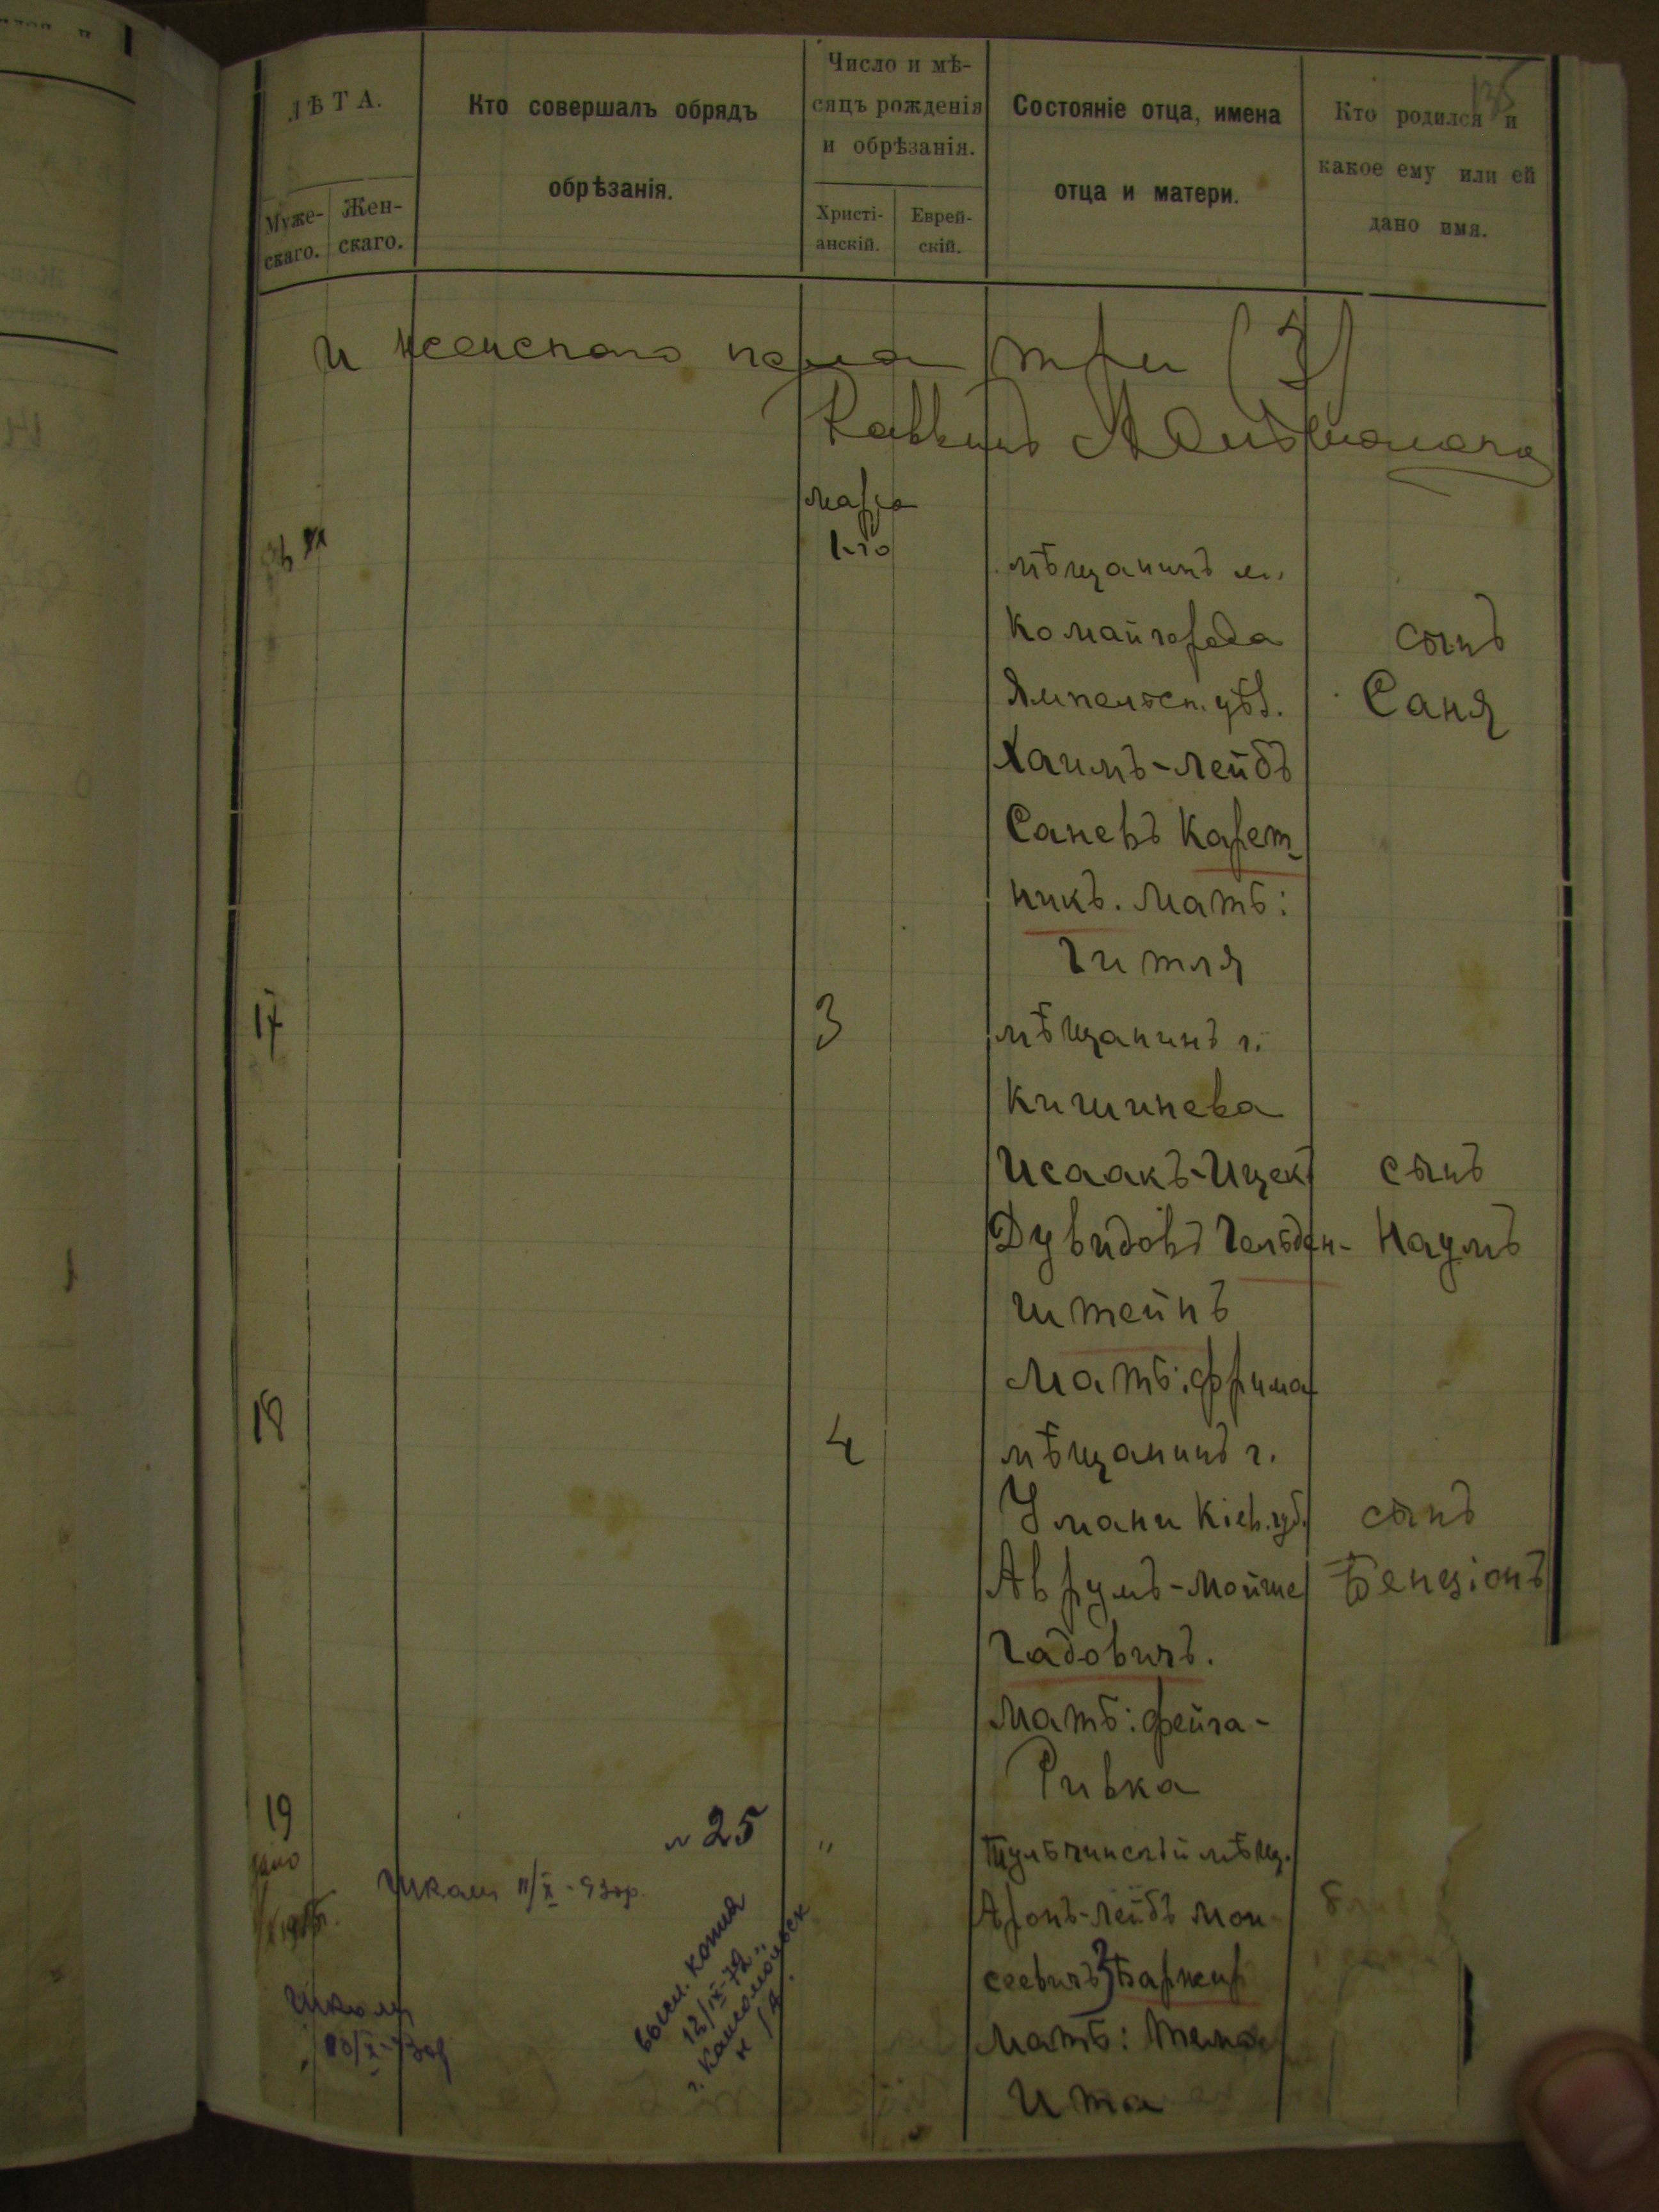 135
ЛѢТА.
Муже-
скаго.
Жен-
скаго.
Кто совершалъ обрядъ
обрѣзанія.
Число и мѣ-
сяцъ рожденія
и обрѣзанія.
Христі-
анскій.
Еврей-
скій.
Состояніе отца, имена
отца и матери.
Кто родился и
какое ему или ей
дано имя.
и женскаго пола три (3)
Раввинъ
марта
1-го
мѣщанинъ м.
Комайгорода
Ямпольск. уѣз.
Хаимъ-Лейбъ
Саневъ Карет-
никъ. Мать:
Гитля
сынъ
Саня
17
3
мѣщанинъ г.
Кишинева
Исаакъ-Ицекъ
Дувидовъ Гольден-
штейнъ
Мать: Фрима
сынъ
Наумъ
18
4
мѣщанинъ г.
Умани Кіев. губ.
Аврумъ-Мойше
Гадовичъ.
Мать: Фейга-
Ривка
сынъ
Бенціонъ
19
N 25
"
Тульчинскій мѣщ.
Аронъ-Лейбъ Мои
сеевичъ
Мать:
Ита
11/X
высл. копия
12/IX-72